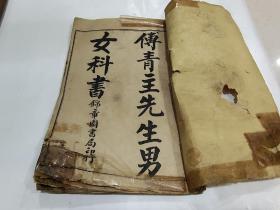 傅青主先生男
女科書錦章圖書局印